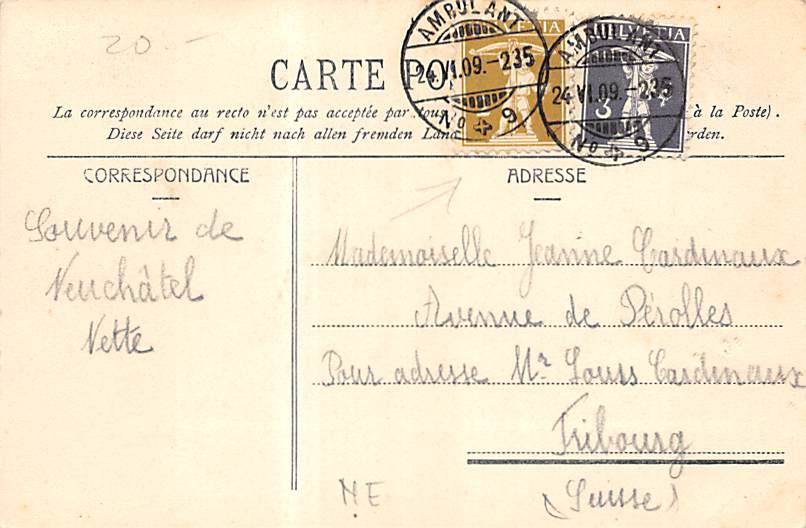 20.-
AMBULANT
24.VI.09.-235
No 9
HELVETIA
AMBULANT
24.VI.09.-235
No 9
HELVETIA
3
CARTE PO
La correspondance au recto n'est pas acceptée par tous à la Poste).
Diese Seite darf nicht nach allen fremden rden.
CORRESPONDANCE
Souvenir de
Neuchâtel
Nette
ADRESSE
Mademoiselle Jeanne Cardinaux
Avenue de Pérolles
Pour adresse Mr Louis Cardinaux
Fribourg
(Suisse)
NE